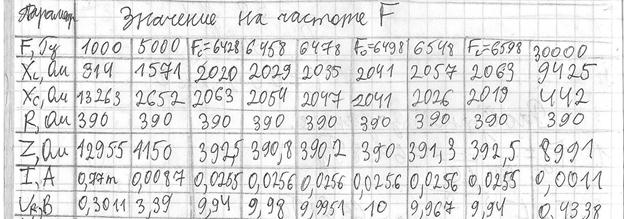 Параметр Значение на частоте F
F, Гц 1000 5000 F₁=6428 6458 6478 F₀=6498 6548 F₂=6598 30000
XL, Ом 314 1571 2020 2029 2035 2041 2057 2063 9425
XC, Ом 13263 2652 2063 2054 2047 2041 2026 2019 442
R, Ом 390 390 390 390 390 390 390 390 390
Z, Ом 12955 1150 392,5 390,8 390,2 390 391,3 392,5 8991
I, A 0,77m 0,0087 0,0255 0,0256 0,0256 0,0256 0,0256 0,0255 0,0011
UR, В 0,3011 3,39 9,94 9,98 9,9951 10 9,967 9,94 0,4338